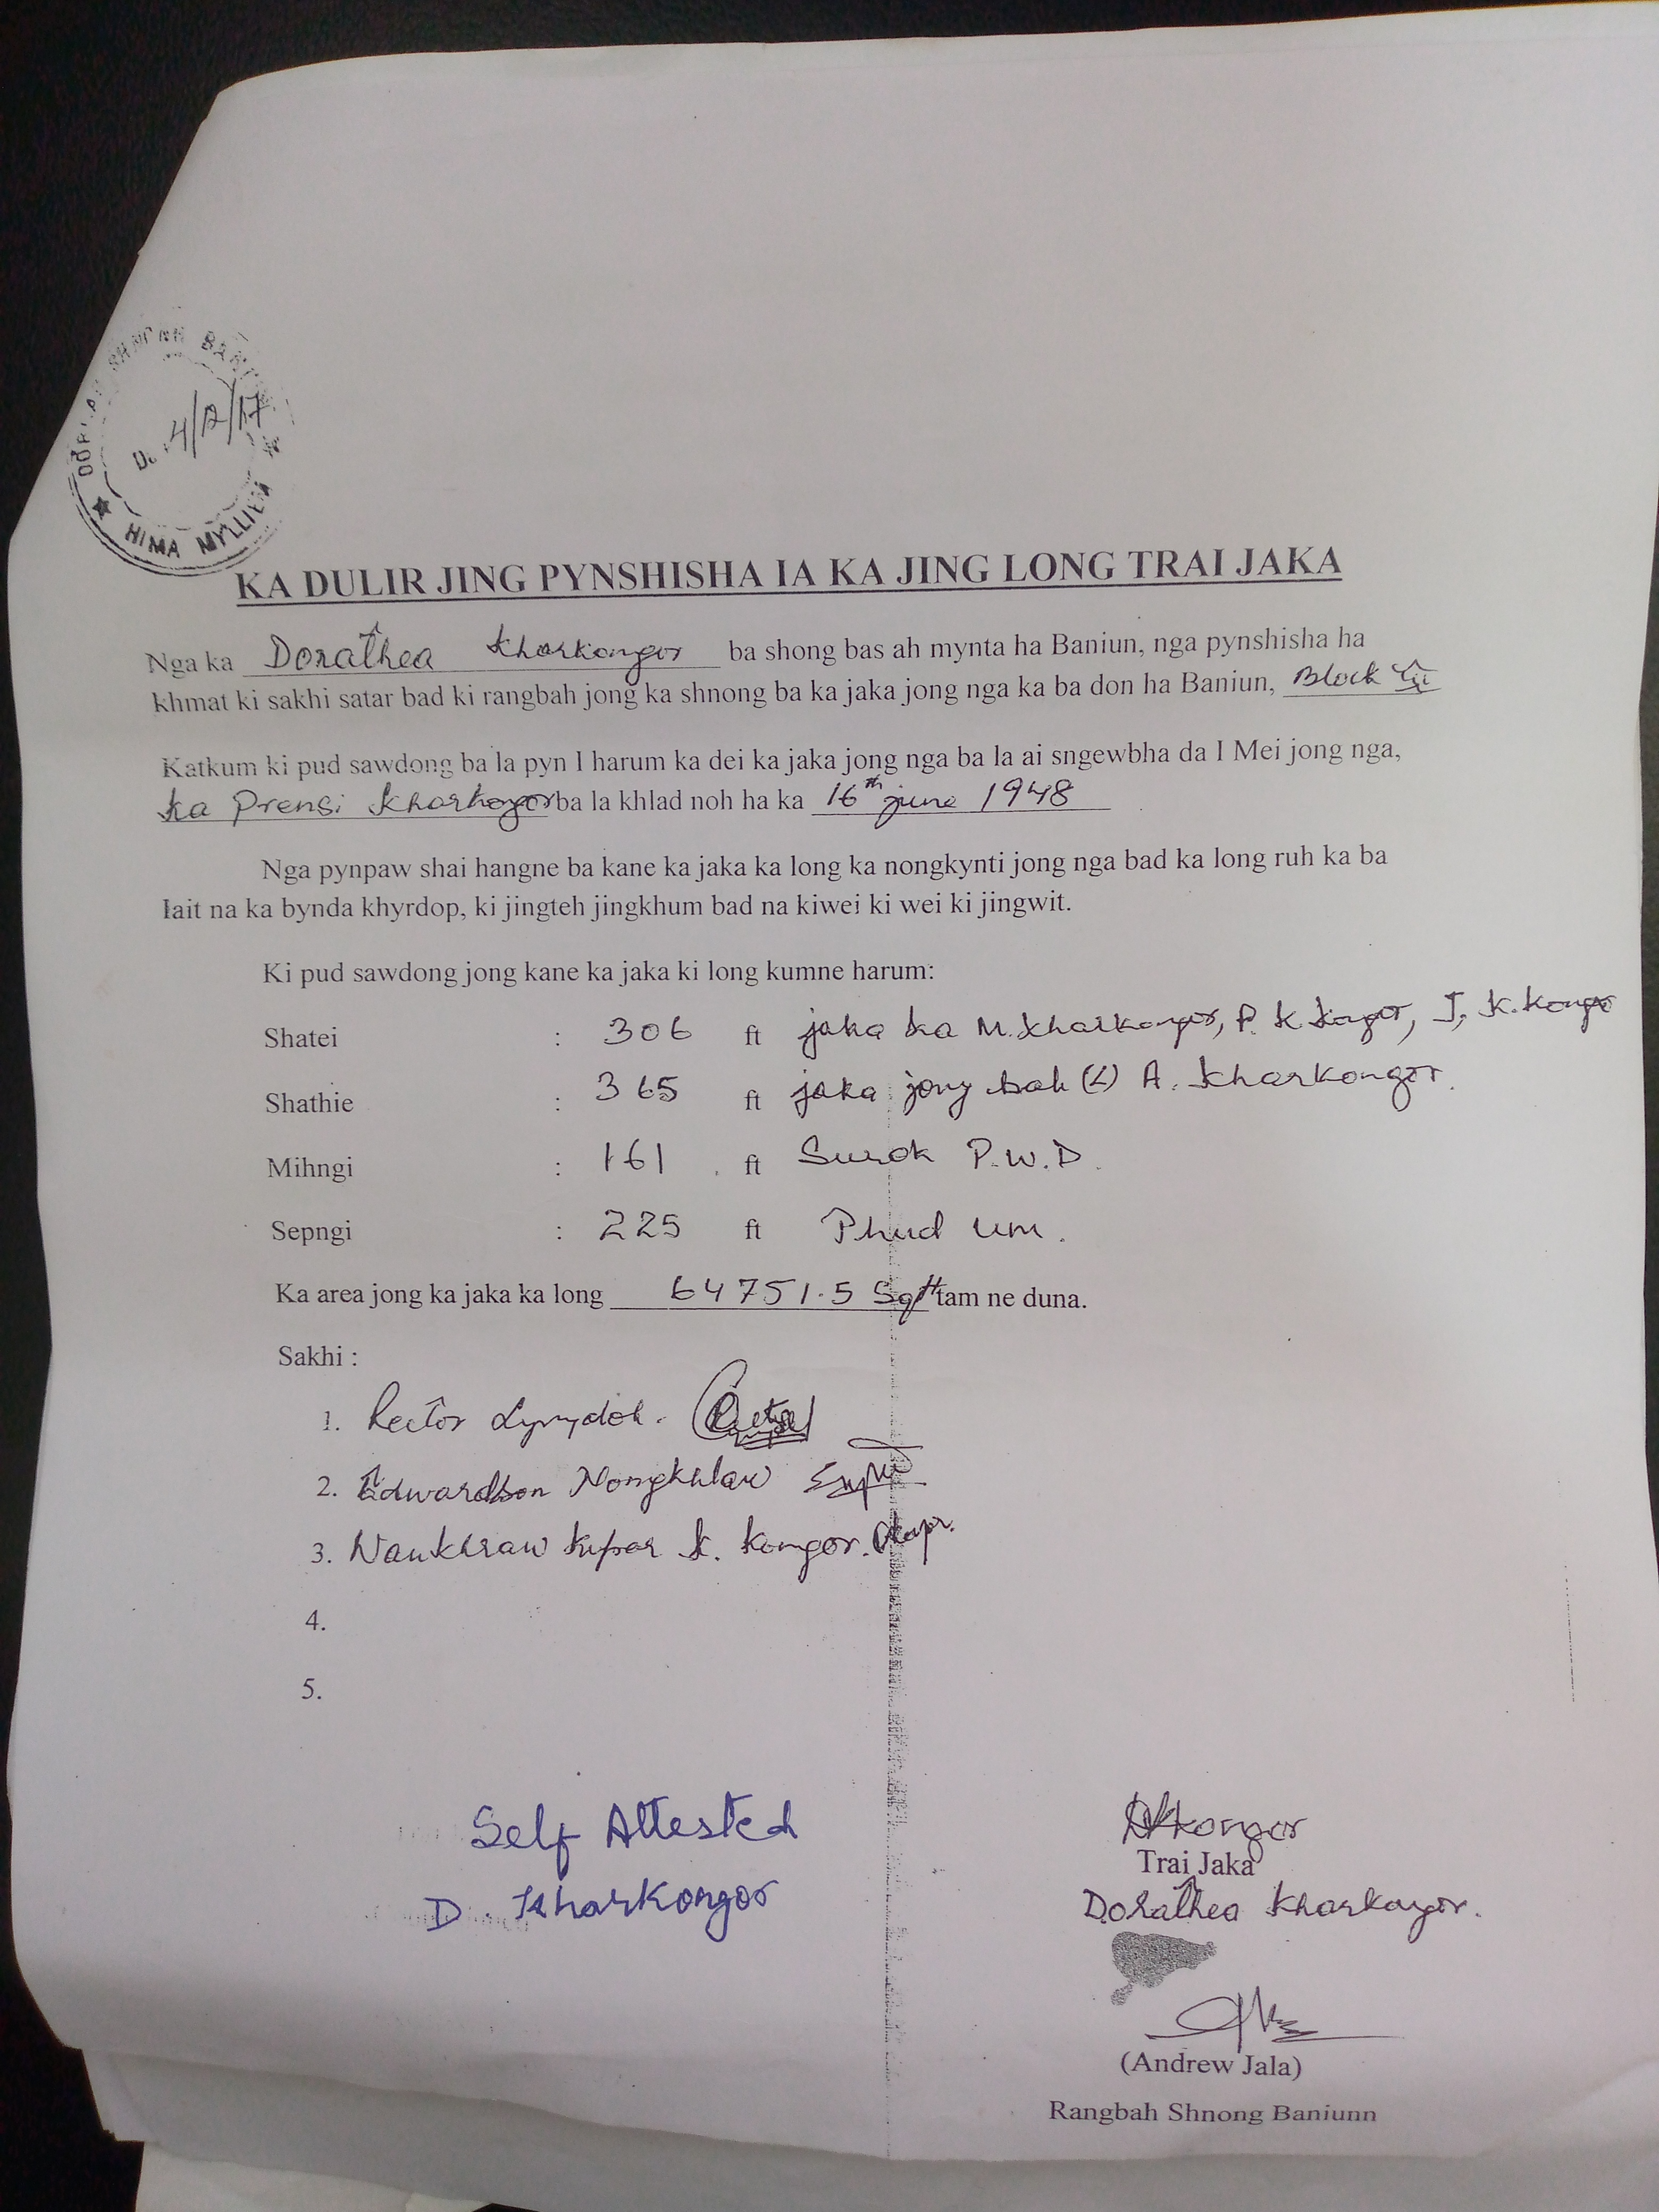 DORBAR SHNONG BAN
D. 4/12/17
HIMA MYLLIEM
KA DULIR JING PYNSHISHA IA KA JING LONG TRAI JAKA
Nga ka Dorathea Kharkongor ba shong bas ah mynta ha Baniun, nga pynshisha ha
khmat ki sakhi satar bad ki rangbah jong ka shnong ba ka jaka jong nga ka ba don ha Baniun, Block iii
Katkum ki pud sawdong ba la pyn I harum ka dei ka jaka jong nga ba la ai sngewbha da I Mei jong nga,
ka Prensi Kharkongor ba la khlad noh ha ka 16th june 1948
Nga pynpaw shai hangne ba kane ka jaka ka long ka nongkynti jong nga bad ka long ruh ka ba
lait na ka bynda khyrdop, ki jingteh jingkhum bad na kiwei ki wei ki jingwit.
Ki pud sawdong jong kane ka jaka ki long kumne harum:
Shatei : 306 ft jaka ka M. Kharkongor, P. K. Kongor, J. K. Kongor
Shathie : 365 ft jaka jong bah (L) A. Kharkongor.
Mihngi : 161 ft Surok P.W.D.
Sepngi : 225 ft Phud um.
Ka area jong ka jaka ka long 64751.5 Sqft tam ne duna.
Sakhi :
1. Rector Lyngdoh.
2. Edwardson Nongkhlaw
3. Kupar K. Kongor.
4.
5.
Self Attested
D. Kharkongor
DKkongor
Trai Jaka
Dorathea Kharkongor.
(Andrew Jala)
Rangbah Shnong Baniunn